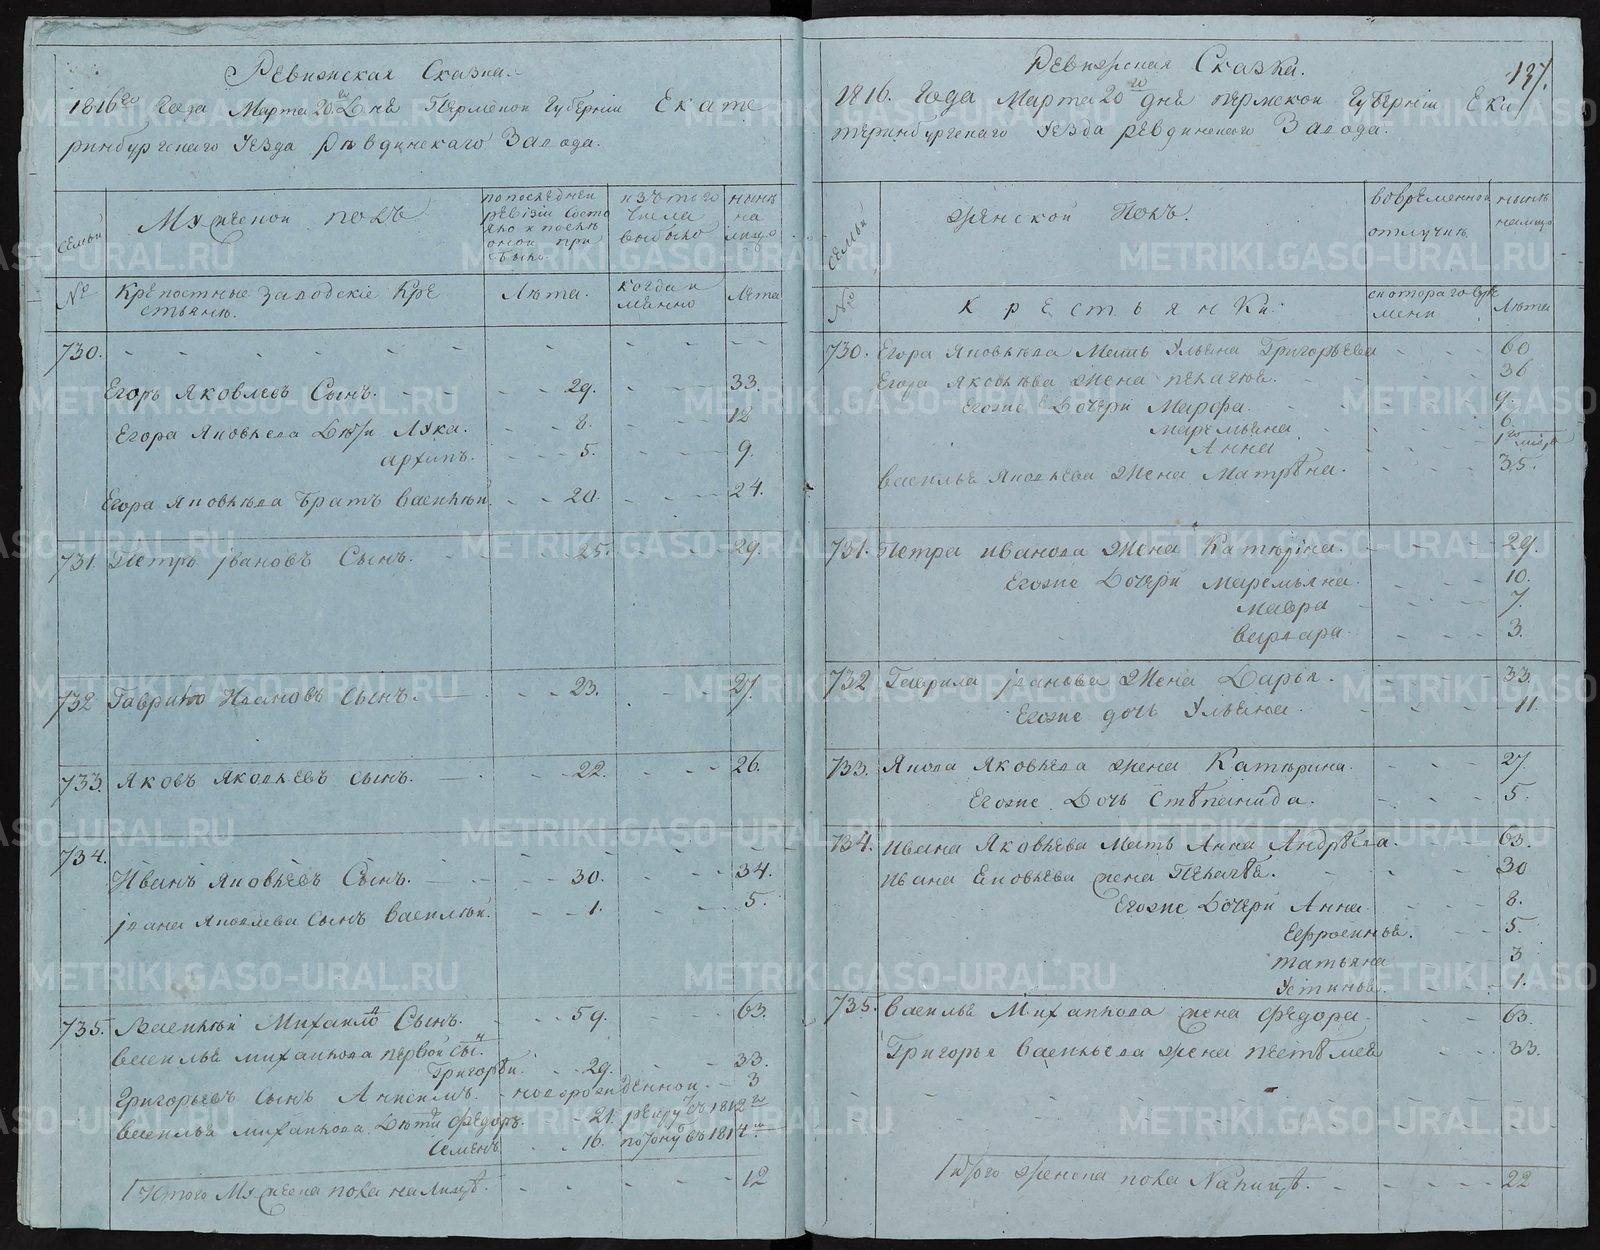 Ревизская Сказка.
1816го Года Марта 20го Днѣ Пермской Губернiи Екате
ринбургскаго Уезда Ревдинскаго Завода.
Семьи
Мужеской полъ
по последней
ревизiи состо
яло и после
оной при
было
изъ того
числа
выбыло
нынѣ
на
лицо
№
Крѣпостные Заводскiе Кре
стьянѣ.
Лѣта.
когда и
мѣнно
Лѣта
730. - - - - - - - -
Егоръ Яковлевъ Сынъ. - - 29. - - 33.
Егора Яковлева Дѣти Лука. - - 8. - - 12
архипъ. - - 5. - - 9.
Егора Яковлева Братъ Василѣй - - 20. - - 24.
731. Петръ iвановъ Сынъ. - - 25. - - 29.
732 Гаврило Ивановъ Сынъ. - - 23. - - 27.
733. Яковъ Яковлевъ сынъ. - - 22. - - 26.
734. - - - -
Иванъ Яковлевъ Сынъ. - - 30. - - 34.
iвана Яковлева Сынъ Василѣй. - - 1. - - 5.
735. Василѣй Михаилов Сынъ. - - 59. - - 63.
Василья михаилова первой сынъ
Григорѣй. - - 29. - - 33.
Григорьевъ Сынъ Анисимъ. - новорожденной. - 3
Василья михаилова Дѣти Федоръ. - 21. рекрутъ 1812го
Семенъ - - 16. 1814го
Итого Мужеска пола на лицѣ. - - - - 12
Ревизская Сказка.
137.
1816. Года Марта 20го днѣ пермской Губернiи Ека
теринбургскаго Уезда ревдинскаго Завода.
Семьи
женской Полъ.
во временной
отлучкѣ
нынѣ
на лицо
№
Крестьянки.
с котораго вре
мени
Лѣта
730. Егора Яковлева Мать Ульяна Григорьева - - 60
Егора Яковлева жена пелагѣя. - - 36
Егоже Дочери Марфа. - - 9.
Маремьяна - - 6.
Анна - - 1го
Василья Яковлева Жена Матрѣна. - - 35.
731. Петра иванова Жена Катерiна. - - 29.
Егоже Дочери Маремьяна. - - 10.
Мавра - - 7.
Варвара. - - 3.
732 Гаврила iванова Жена Дарья. - - 33.
Егоже дочь Ульяна. - - 11.
733. Якова Яковлева жена Катѣрина. - - 27.
Егоже Дочь Степанида. - - 5.
734. Ивана Яковлева Мать Анна Андрѣева. - - 63.
Ивана Яковлева жена Пелагѣя. - - 30
Егоже Дочери Анна. - - 8.
Ефросинья. - - 5.
татьяна - - 3
Устинья. - - 1.
735. Василья Михаилова жена Федора. - - 63.
Григорья Васильева жена пестемея - - 33.
Итого женска пола На лицѣ. - - - - 22
METRIKI.GASO-URAL.RU